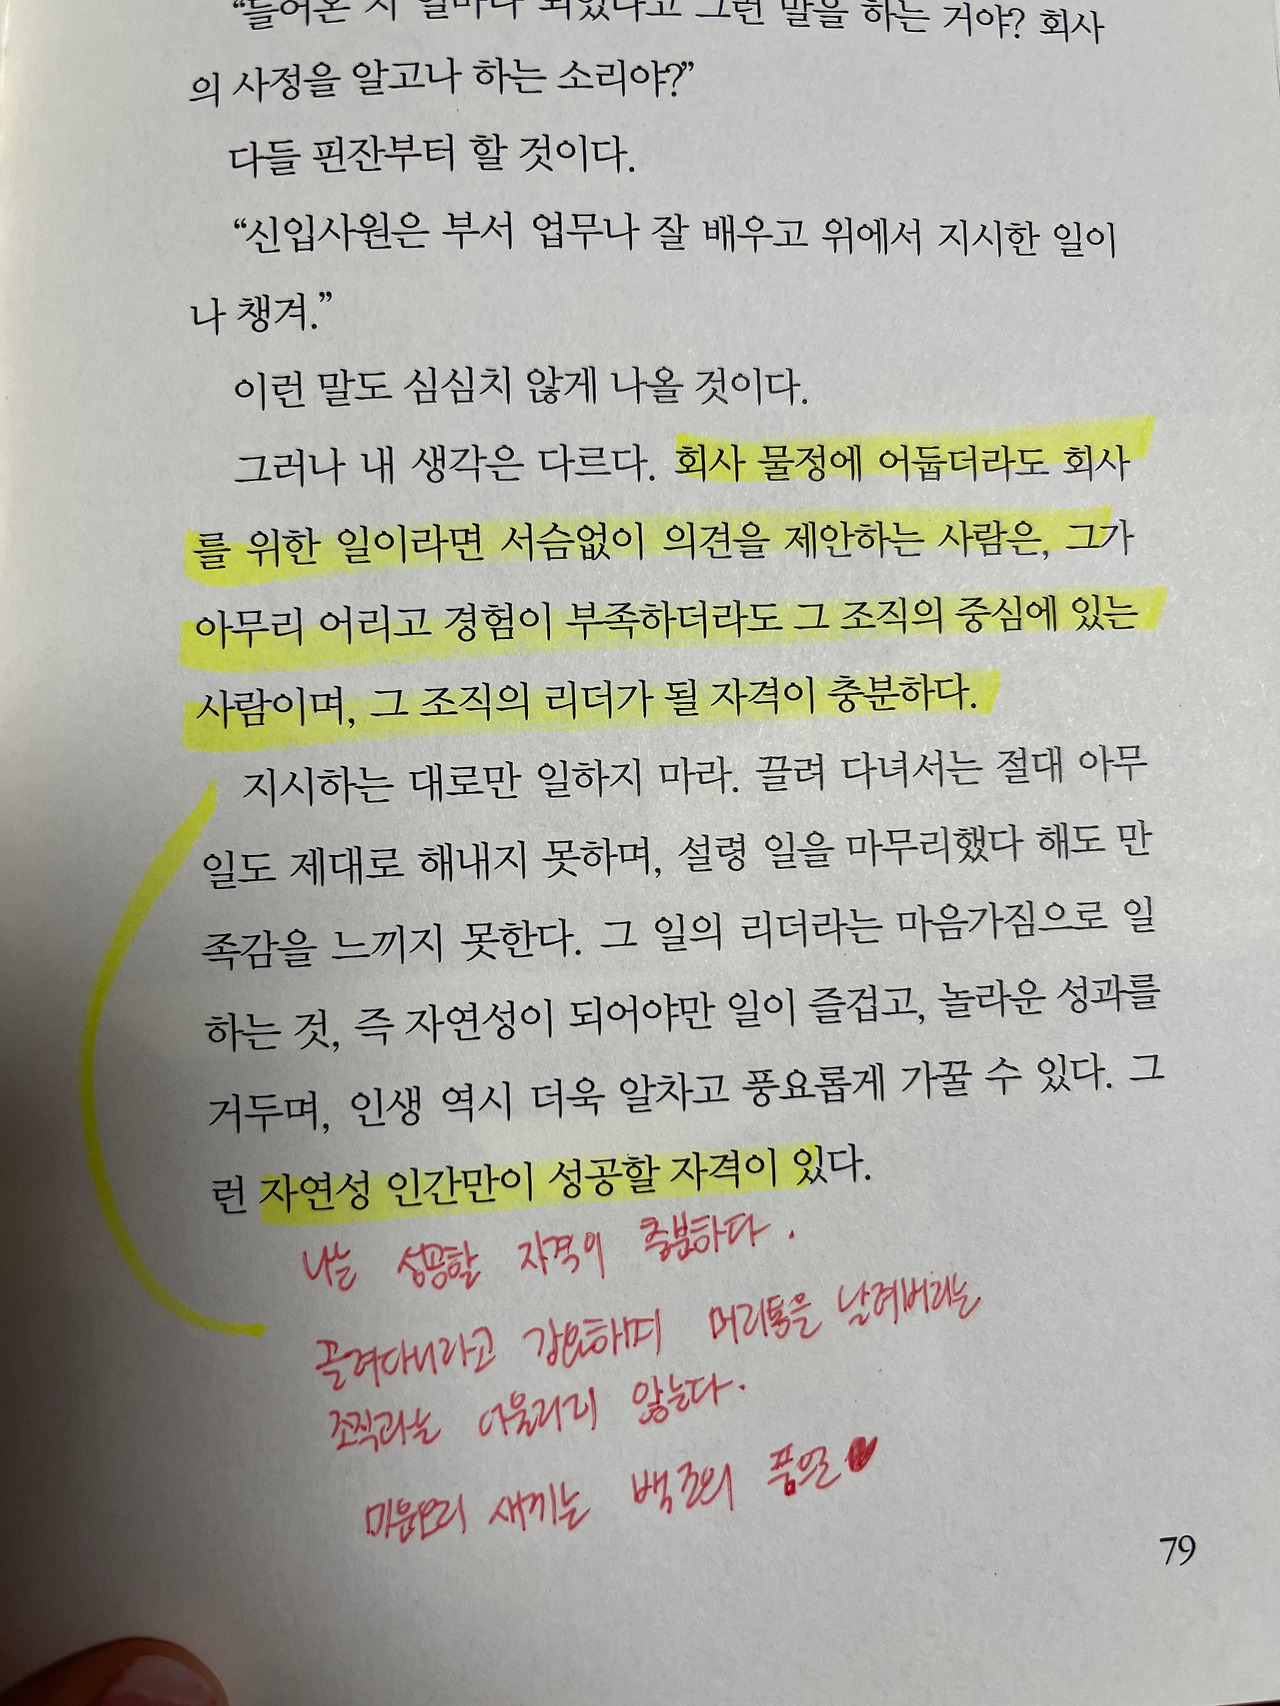 “들어온 지 얼마나 되었다고 그런 말을 하는 거야? 회사
의 사정을 알고나 하는 소리야?”
다들 핀잔부터 할 것이다.
“신입사원은 부서 업무나 잘 배우고 위에서 지시한 일이
나 챙겨.”
이런 말도 심심치 않게 나올 것이다.
그러나 내 생각은 다르다. 회사 물정에 어둡더라도 회사
를 위한 일이라면 서슴없이 의견을 제안하는 사람은, 그가
아무리 어리고 경험이 부족하더라도 그 조직의 중심에 있는
사람이며, 그 조직의 리더가 될 자격이 충분하다.
지시하는 대로만 일하지 마라. 끌려 다녀서는 절대 아무
일도 제대로 해내지 못하며, 설령 일을 마무리했다 해도 만
족감을 느끼지 못한다. 그 일의 리더라는 마음가짐으로 일
하는 것, 즉 자연성이 되어야만 일이 즐겁고, 놀라운 성과를
거두며, 인생 역시 더욱 알차고 풍요롭게 가꿀 수 있다. 그
런 자연성 인간만이 성공할 자격이 있다.
나는 성공할 자격이 충분하다.
끌려다니라고 강요하며 머리통을 날려버리는
조직과는 어울리지 않는다.
미운오리 새끼는 백조의 품으로
79